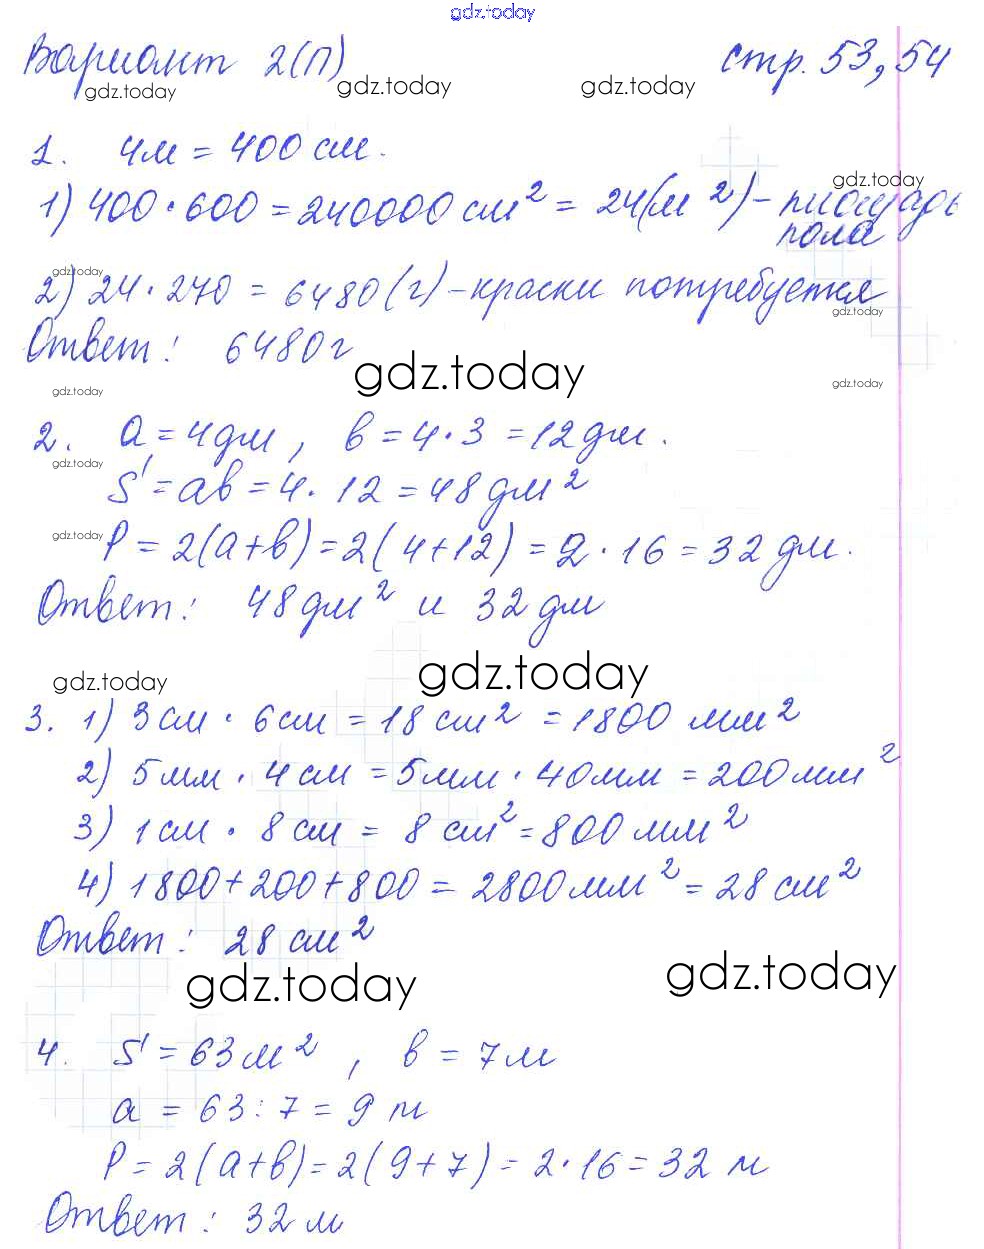 gdz.today
Вариант 2(П) стр. 53, 54
gdz.today gdz.today gdz.today
1. 4м = 400 см.
gdz.today
1) 400 · 600 = 240000 см² = 24(м²) – площадь
пола
gdz.today
2) 24 · 270 = 6480 (г) – краски потребуется
gdz.today
Ответ: 6480 г
gdz.today
gdz.today gdz.today
2. a = 4 дм, b = 4 · 3 = 12 дм.
gdz.today
S = ab = 4 · 12 = 48 дм²
gdz.today
P = 2(a+b) = 2(4+12) = 2 · 16 = 32 дм.
Ответ: 48 дм² и 32 дм
gdz.today gdz.today
3. 1) 3 см · 6 см = 18 см² = 1800 мм²
2) 5 мм · 4 см = 5 мм · 40 мм = 200 мм²
3) 1 см · 8 см = 8 см² = 800 мм²
4) 1800 + 200 + 800 = 2800 мм² = 28 см²
Ответ: 28 см²
gdz.today gdz.today
4. S = 63 м², b = 7 м
a = 63 : 7 = 9 м
P = 2(a+b) = 2(9+7) = 2 · 16 = 32 м
Ответ: 32 м